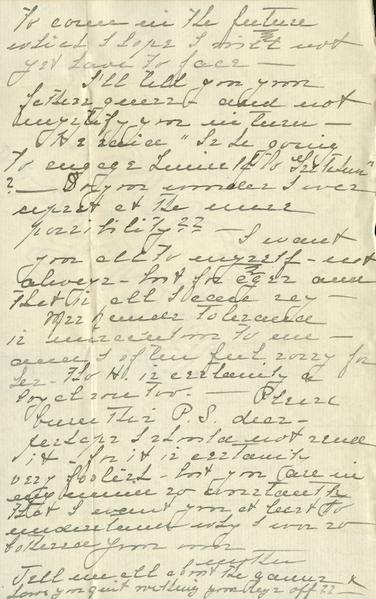 to come in the future
which I hope I will not
yet have to face —
I'll tell you your
father queers and not
mystify you in turn —
He said "Is he going
to engage himself to
? — Do you wonder I was
upset at the mere
possibility?? — I want
you all to myself — not
always — but for ages and
that is all I can say —
Mrs tolerance
is to me —
and I often feel sorry for
her — tho H. is certainly a
loyal son too. — Please
burn this P.S. dear —
perhaps I should not send
it — for it is certainly
very foolish — but you are in
my mind so constantly
that I want you at least to
understand why I was so
bothered your own
mother
Tell me all about the games &
have you quit